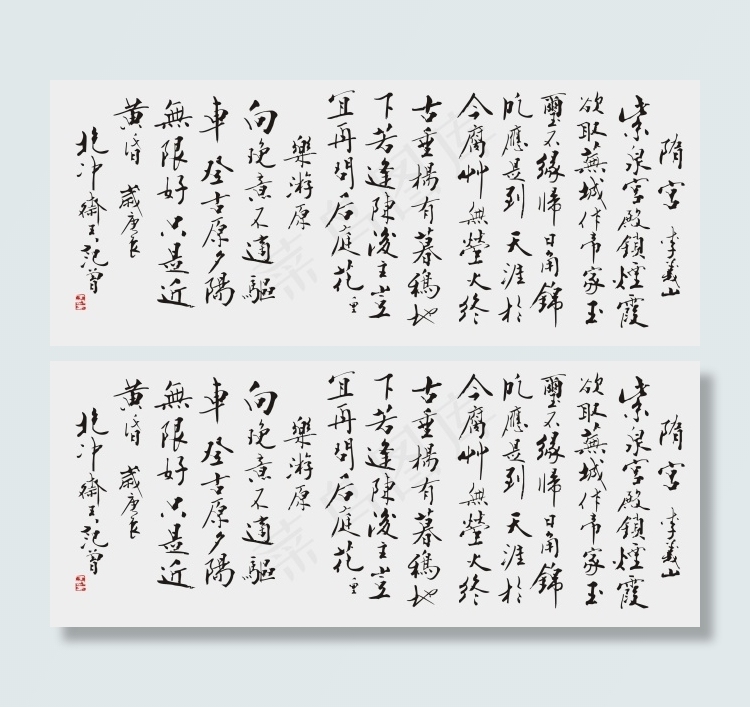 隋宫 李義山
紫泉宮殿鎖煙霞
欲取蕪城作帝家玉
璽不緣歸日角錦
帆應是到天涯於
今腐艸無螢火終
古垂楊有暮鴉地
下若逢陳後主豈
宜再問后庭花 重
樂游原
向晚意不適驅
車登古原夕陽
無限好只是近
黃昏 歲庚辰
抱冲齋主范曾
菜鸟图库
隋宫 李義山
紫泉宮殿鎖煙霞
欲取蕪城作帝家玉
璽不緣歸日角錦
帆應是到天涯於
今腐艸無螢火終
古垂楊有暮鴉地
下若逢陳後主豈
宜再問后庭花 重
樂游原
向晚意不適驅
車登古原夕陽
無限好只是近
黃昏 歲庚辰
抱冲齋主范曾
菜鸟图库